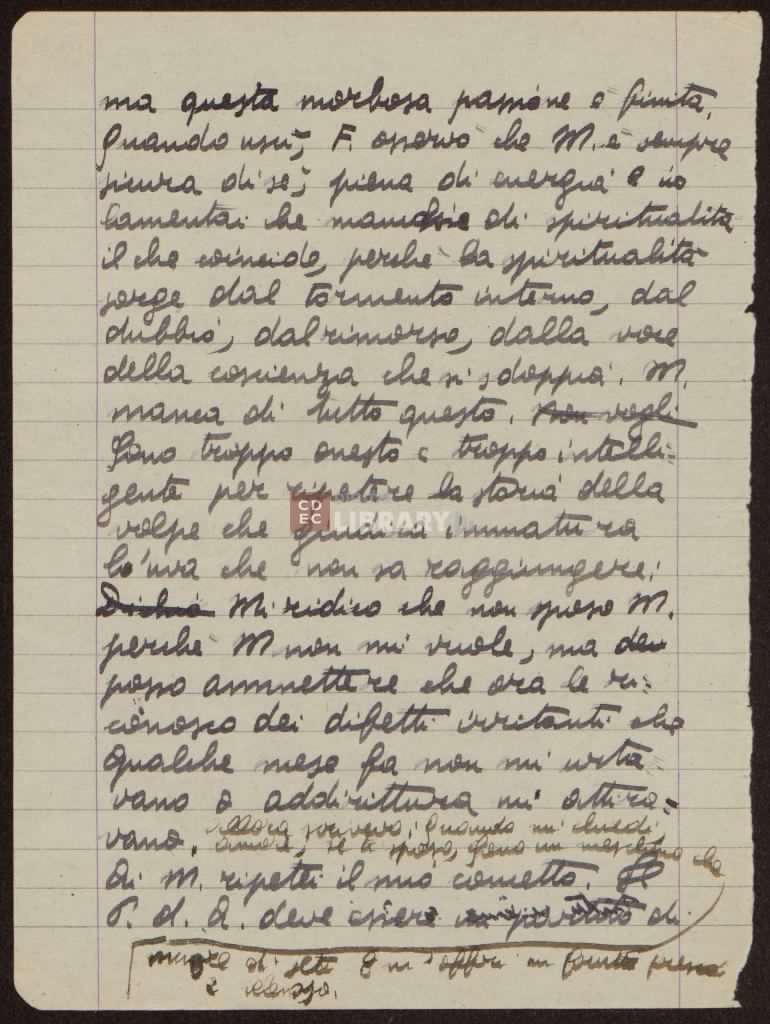 ma questa morbosa passione è finita.
Quando uscì, F. osservò che M. è sempre
sicura di sé, piena di energia e io
lamentai che mancasse di spiritualità
il che coincide, perché la spiritualità
sorge dal tormento interno, dal
dubbio, dal rimorso, dalla voce
della coscienza che si sdoppia. M.
manca di tutto questo. Non vogli
Sono troppo onesto e troppo intelli-
gente per ripetere la storia della
volpe che giudica immatura
l'uva che non sa raggiungere.
CDEC LIBRARY
Dichia Mi ridico che non sposo M.
perché M non mi vuole, ma
posso ammettere che ora le ri-
conosco dei difetti irritanti che
qualche mese fa non mi urta-
vano o addirittura mi attira-
vano. Allora scrivevo: Quando mi chiedi,
amore, se ti sposo, sono un meschino che
Di M. ripetei il mio concetto. Il
P. d. A. deve essere partito di
muore di sete e gli offri un frutto